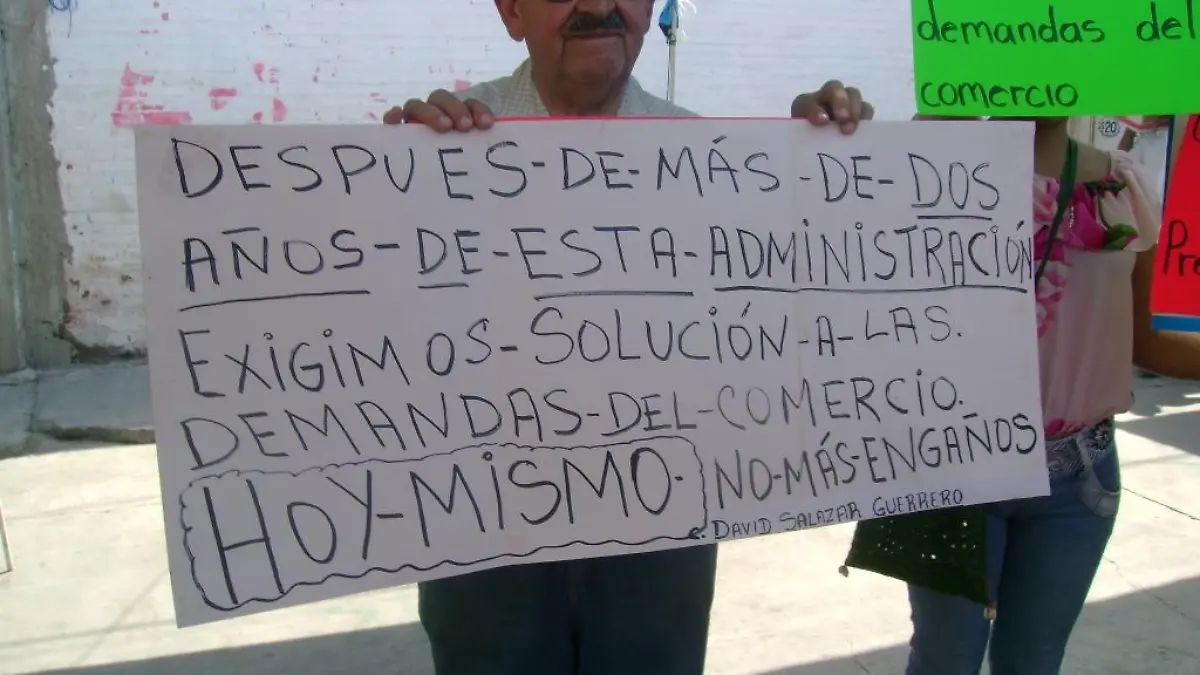 demandas del
comercio
20
DESPUES-DE-MÁS-DE-DOS
AÑOS-DE-ESTA-ADMINISTRACIÓN
EXIGIMOS-SOLUCIÓN-A-LAS.
DEMANDAS-DEL-COMERCIO.
HOY-MISMO. NO-MÁS-ENGAÑOS
DAVID SALAZAR GUERRERO